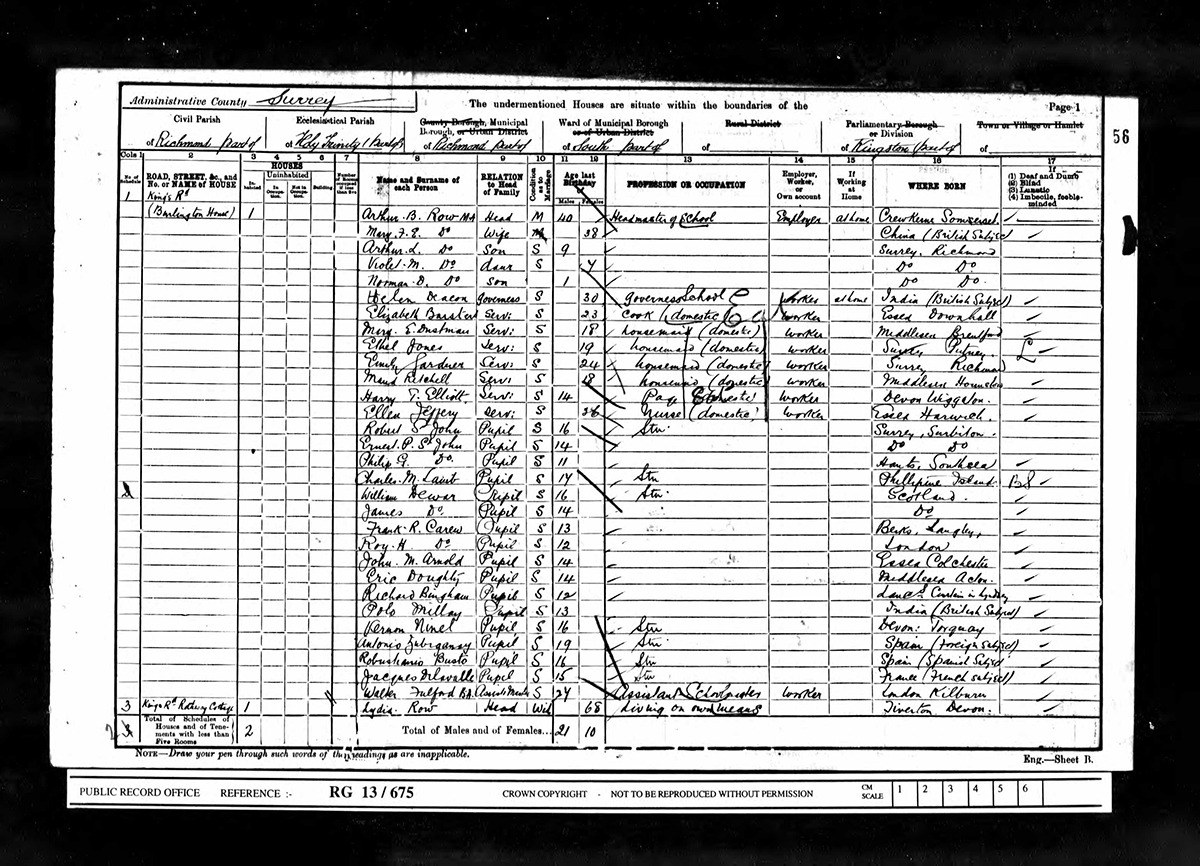 Administrative County Surrey
The undermentioned Houses are situate within the boundaries of the
Page 1
56
Civil Parish
of Richmond part of
Ecclesiastical Parish
of Holy Trinity Part of
County Borough, Municipal Borough, or Urban District
of Richmond part of
Ward of Municipal Borough or of Urban District
of South part of
Rural District
of
Parliamentary Borough or Division
of Kingston Part of
Town or Village or Hamlet
of
Cols 1 2 3 4 5 6 7 8 9 10 11 12 13 14 15 16 17
No. of Schedule
ROAD, STREET, &c., and No. or NAME of HOUSE
HOUSES
Inhabited
Uninhabited
In Occupation.
Not in Occupation.
Building
Number of Rooms occupied if less than five
Name and Surname of each Person
RELATION to Head of Family
Condition as to Marriage
Age last Birthday of
Males Females
PROFESSION OR OCCUPATION
Employer, Worker, or Own account
If Working at Home
WHERE BORN
If
(1) Deaf and Dumb
(2) Blind
(3) Lunatic
(4) Imbecile, feeble-minded
1 King's Rd
(Burlington House) 1 Arthur B. Row MA Head M 40 Headmaster of School Employer at home Crewkerne Somerset
Mary F. E. Do Wife M 38 China (British Subject
Arthur L. Do Son S 9 Surrey, Richmond
Violet M. Do daur S 7 Do Do
Norman D. Do son 1 Do Do.
Helen Deacon governess S 30 governess School worker at home India (British Subject)
Elizabeth Serv: S 23 Cook (domestic) worker Essex Downhall
Mary E. Dustman Serv: S 18 housemaid (domestic) worker Middlesex Brentford
Ethel Jones Serv: S 19 housemaid (domestic) worker Surrey Putney
Emily Gardner Serv: S 24 housemaid (domestic) worker Surrey Richmond
Maud Serv: S 18 housemaid (domestic) worker Middlesex
Harry T. Elliott Serv: S 14 Page domestic worker Devon
Ellen Jeffery Serv: S 26 Nurse (domestic) worker Essex Harwich
Robert St John Pupil S 16 Surrey, Surbiton
Ernest P. St John Pupil S 14 Do Do
Philip G. Do. Pupil S 11 Hants, Southsea
Charles M. Lamb Pupil S 17 Phillipine Island
William Dewar Pupil S 16 Scotland
James Do Pupil S 14 Do
Frank R. Carew Pupil S 13 Berks, Langley,
Roy H Do Pupil S 12 London
John M. Arnold Pupil S 14 Essex Colchester
Eric Doughty Pupil S 14 Middlesex Acton
Richard Bingham Pupil S 12
Polo Millay Pupil S 13 India (British Subject)
Vernon Pupil S 16 Devon: Torquay
Antonio Pupil S 19 Spain (Foreign Subject)
Busto Pupil S 16 Spain (Spanish Subject
Jacques Delavalle Pupil S 15 France (French Subject)
Walter Fulford BA S 27 Assistant Schoolmaster worker London Kilburn
3 King's Rd Cottage 1 Lydia Row Head Wid 68 Living on own means Tiverton Devon.
Total of Schedules of Houses and of Tenements with less than Five Rooms 2
Total of Males and of Females... 21 10
NOTE—Draw your pen through such words of the headings as are inapplicable.
Eng.—Sheet B.
PUBLIC RECORD OFFICE REFERENCE :- RG 13 / 675 CROWN COPYRIGHT - NOT TO BE REPRODUCED WITHOUT PERMISSION CM SCALE 1 2 3 4 5 6